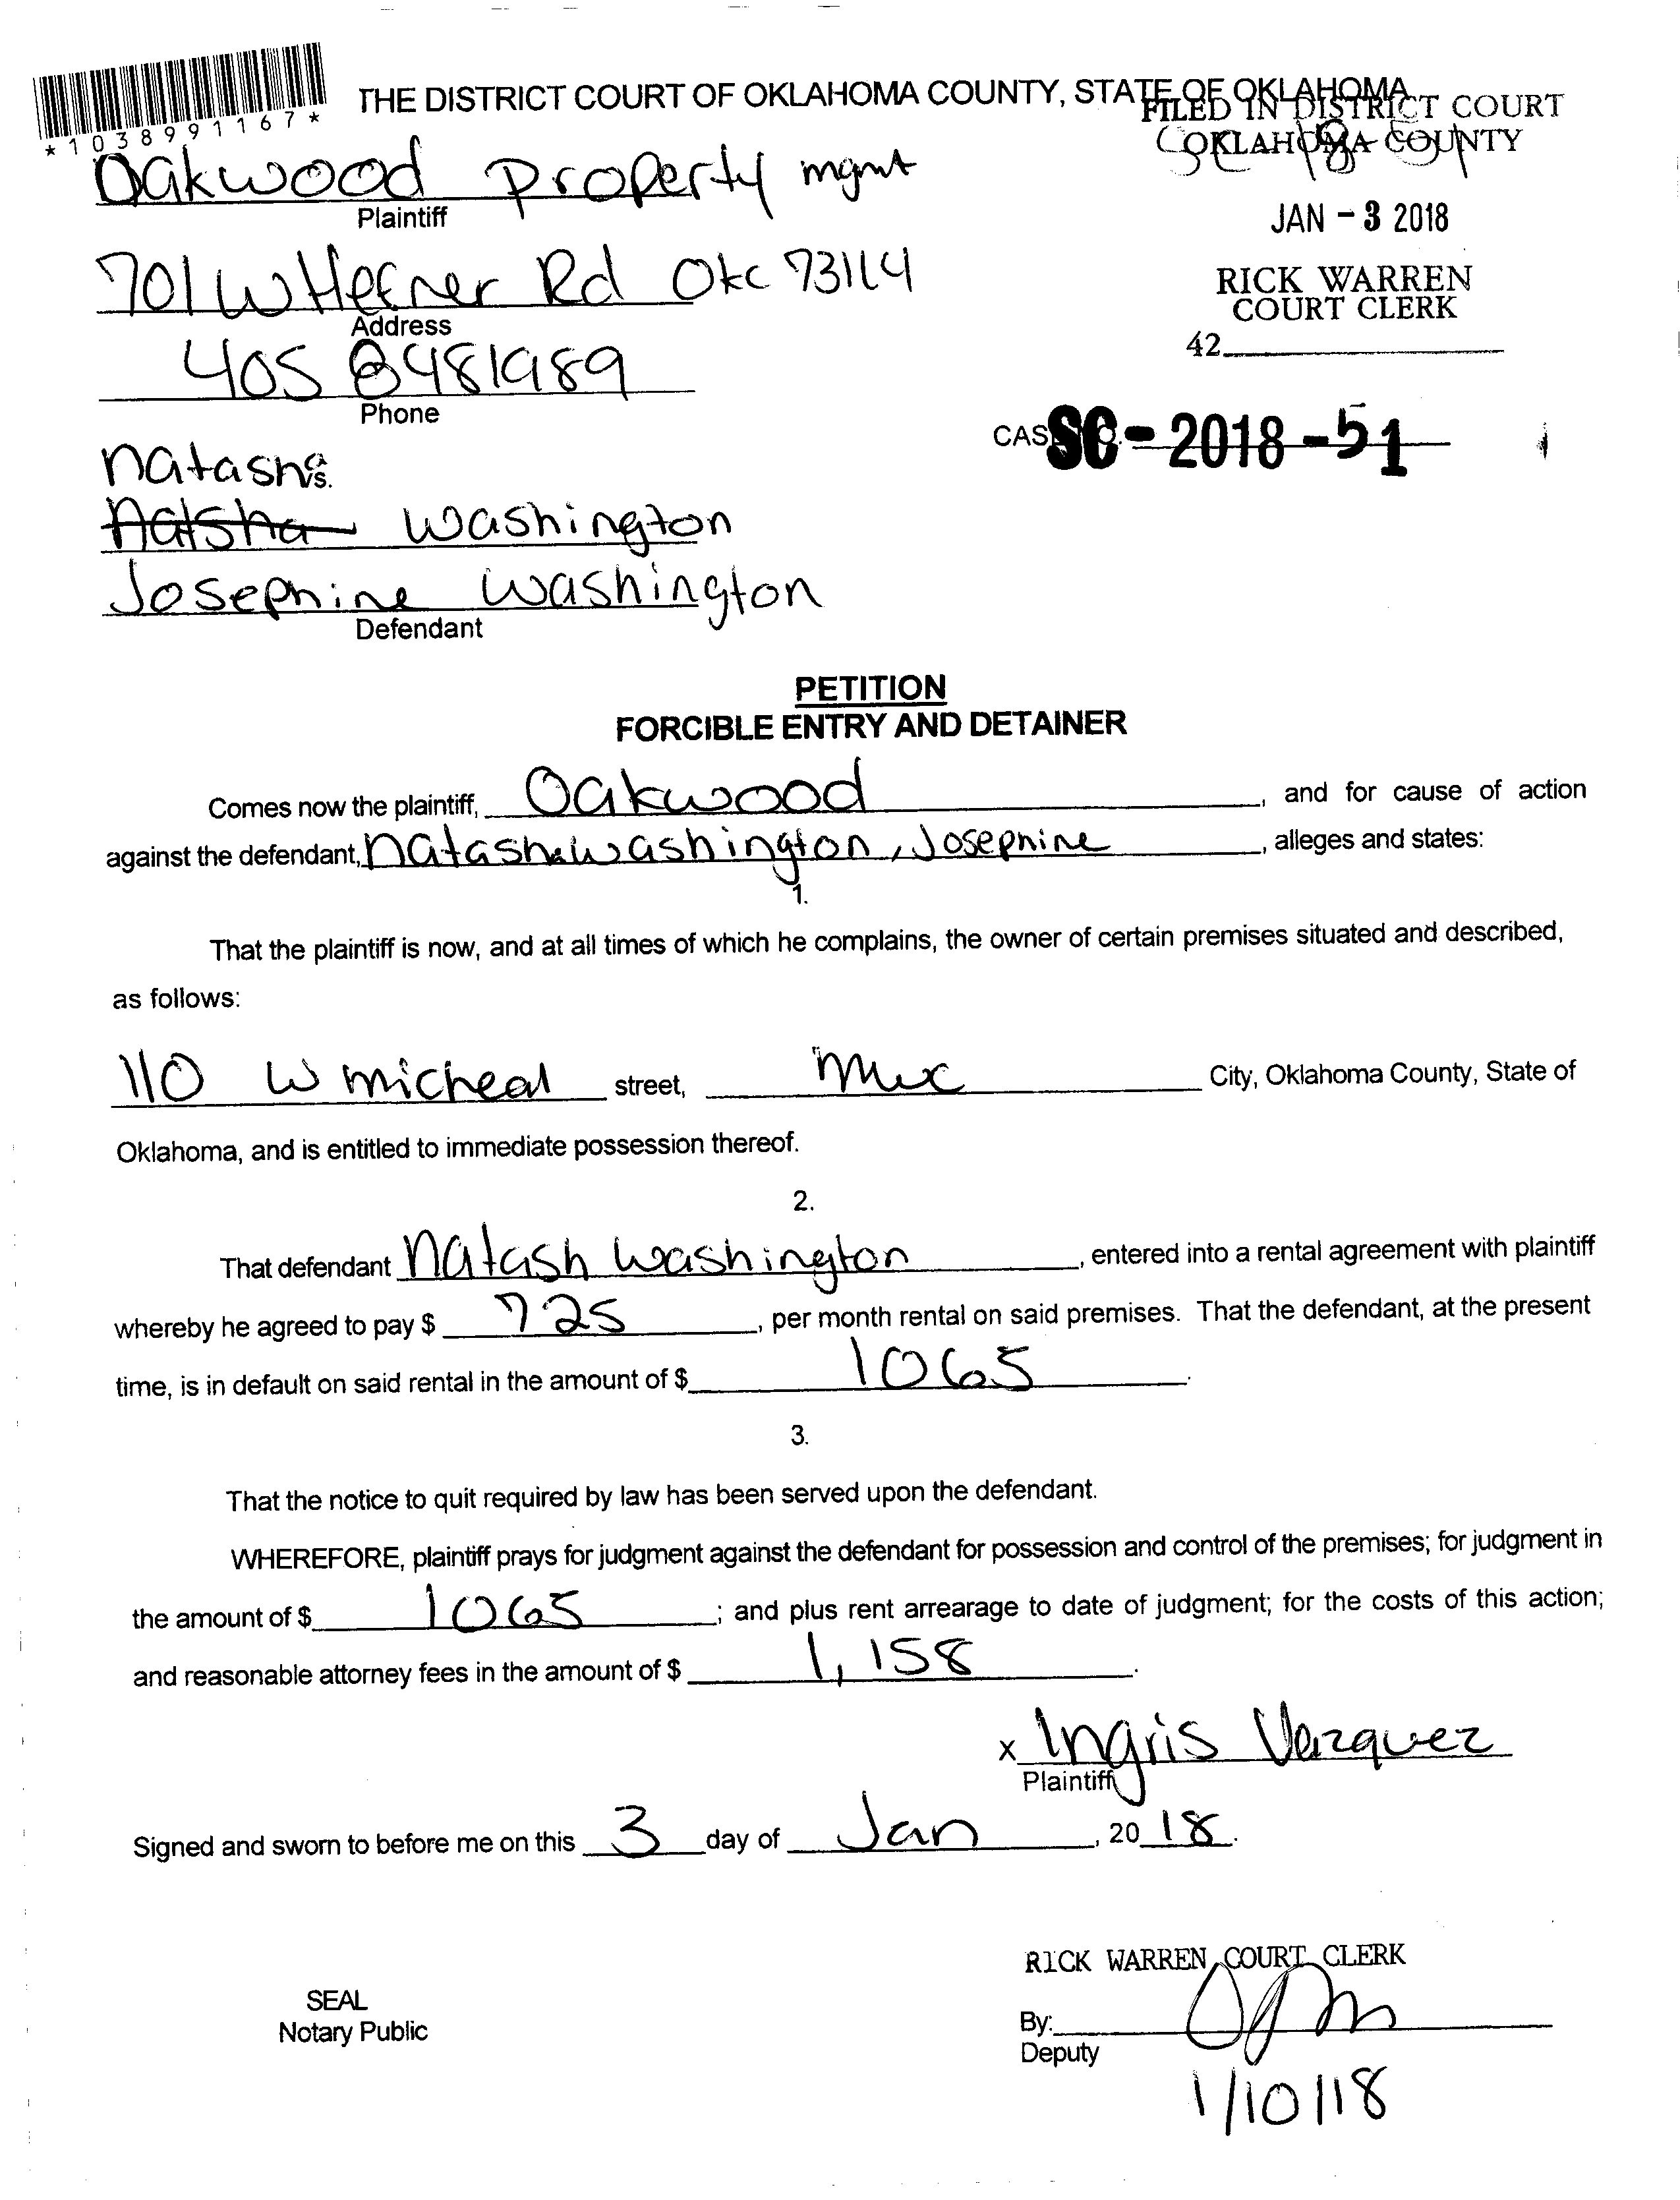 *1038991167*
THE DISTRICT COURT OF OKLAHOMA COUNTY, STATE OF OKLAHOMA
FILED IN DISTRICT COURT
OKLAHOMA COUNTY
Oakwood Property mgmt
Plaintiff
JAN - 3 2018
701 W Hefner Rd Okc 73114
RICK WARREN
COURT CLERK
Address
42
405 8481989
Phone
CAS SC - 2018 - 51
natasha
vs.
natsha washington
Josephine washington
Defendant
PETITION
FORCIBLE ENTRY AND DETAINER
Comes now the plaintiff, Oakwood, and for cause of action
against the defendant, natasha washington, Josephine, alleges and states:
1.
That the plaintiff is now, and at all times of which he complains, the owner of certain premises situated and described,
as follows:
110 W micheal street, mwc City, Oklahoma County, State of
Oklahoma, and is entitled to immediate possession thereof.
2.
That defendant natash washington, entered into a rental agreement with plaintiff
whereby he agreed to pay $ 725, per month rental on said premises. That the defendant, at the present
time, is in default on said rental in the amount of $ 1065.
3.
That the notice to quit required by law has been served upon the defendant.
WHEREFORE, plaintiff prays for judgment against the defendant for possession and control of the premises; for judgment in
the amount of $ 1065; and plus rent arrearage to date of judgment; for the costs of this action;
and reasonable attorney fees in the amount of $ 1,158.
x Ingris Vazquez
Plaintiff
Signed and sworn to before me on this 3 day of Jan, 20 18.
RICK WARREN COURT CLERK
SEAL
Notary Public
By:
Deputy
1/10/18